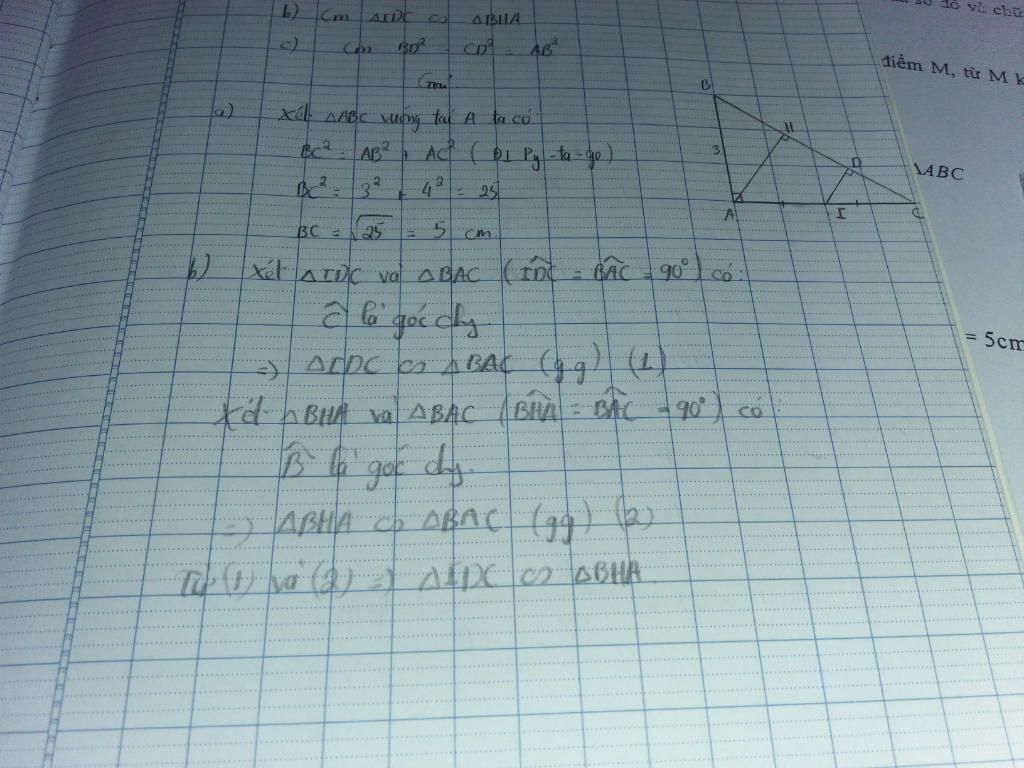 b) Cm △IDC ∽ △BHA
c) Cm BD² - CD² = AB²
Giải
a) Xét △ABC vuông tại A ta có:
BC² = AB² + AC² ( ĐL Py-ta-go)
BC² = 3² + 4² = 25
BC = √25 = 5 cm
b) Xét △IDC và △BAC (IDC = BAC = 90°) có:
Ĉ là góc chg
=> △IDC ∽ △BAC (gg) (1)
Xét △BHA và △BAC (BHA = BAC = 90°) có:
B̂ là góc chg.
=> △BHA ∽ △BAC (gg) (2)
Từ (1) và (2) => △IDC ∽ △BHA
B
H
3
D
A
I
C
số đó và chữ
điểm M, từ M k
ABC
= 5cm